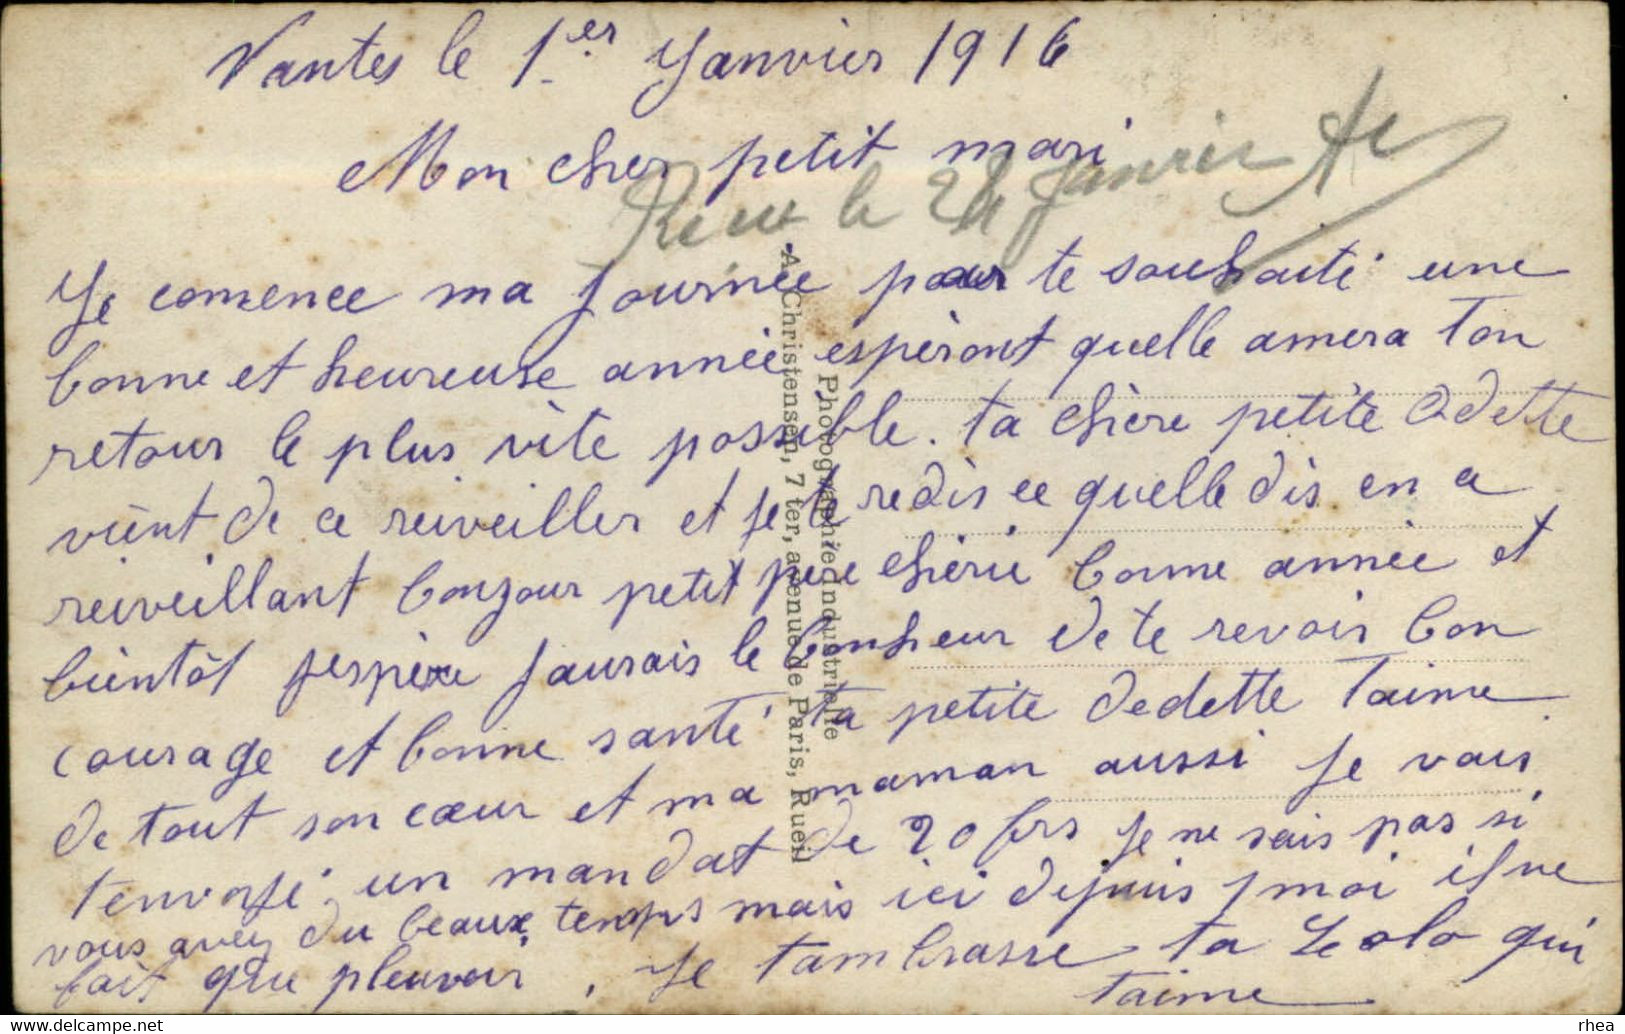 Nantes le 1er Janvier 1916
Mon cher petit mari
Recu le 24 Janvier
Je comence ma journée pour te souhaité une
bonne et heureuse année espèront quelle amera ton
retour le plus vite possible. ta chère petite Odette
vient de ce reiveiller et je te redis ce quelle dis en ce
reiveillant bonjour petit pere chérie bonne année et
bientôt jespère jaurais le bonheur de te revoir bon
courage et bonne santé ta petite Dedette taime
de tout son cœur et ma maman aussi je vais
tenvoyé un mandat de 20 frs je ne sais pas si
vous avez du beaux temps mais ici depuis 1 moi il ne
fait que pleuvoir, je tambrasse ta Lolo qui
taime
Photographie Industrielle
A. Christensen, 7 ter, avenue de Paris, Rueil
rhea